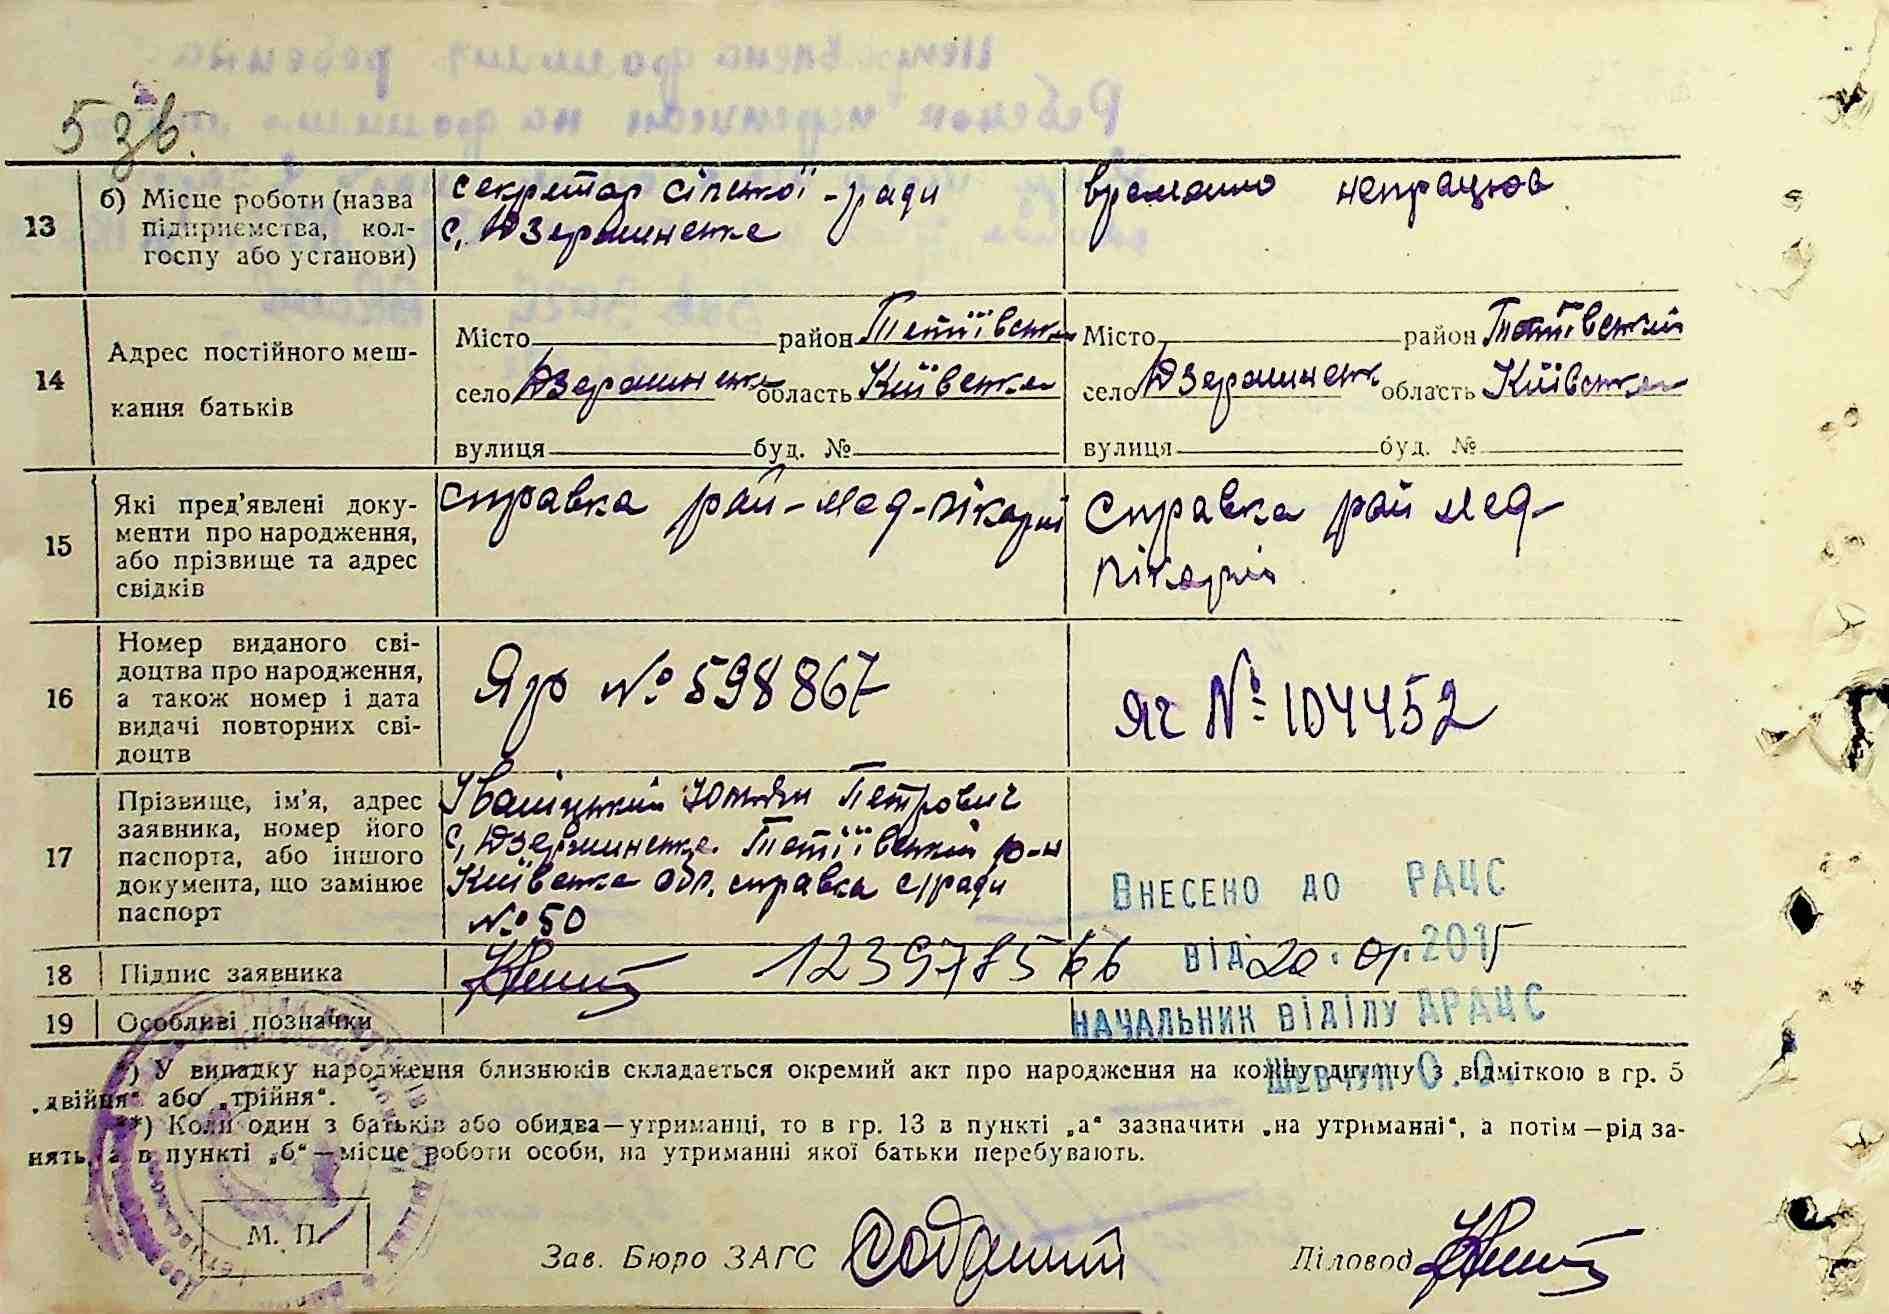 5 зв.
13 б) Місце роботи (назва підприємства, колгоспу або установи)
секретар сільської-ради
с, Дзержинське
временно непрацює
14 Адрес постійного мешкання батьків
Місто район Тетіївський
село Дзержинське область Київська
вулиця буд. №
Місто район Тетіївський
село Дзержинськ область Київська
вулиця буд. №
15 Які пред'явлені документи про народження, або прізвище та адрес свідків
справка рай-мед-лікарні
справка рай мед-
лікарні
16 Номер виданого свідоцтва про народження, а також номер і дата видачі повторних свідоцтв
№ 598867
ЯГ № 104452
17 Прізвище, ім'я, адрес заявника, номер його паспорта, або іншого документа, що замінює паспорт
Іваніцький Юльян Петрович
с, Дзержинське. Тетіївський р-н
Київська обл. справка с/ради
№ 50
Внесено до РАЦС
від 20.01.2015
18 Підпис заявника
19 Особливі позначки
начальник відділу ДРАЦС
Шевчук О.О.
*) У випадку народження близнюків складається окремий акт про народження на кожну дитину з відміткою в гр. 5
„двійня" або „трійня".
**) Коли один з батьків або обидва—утриманці, то в гр. 13 в пункті „а" зазначити „на утриманні", а потім—рід за-
нять, а в пункті „б"—місце роботи особи, на утриманні якої батьки перебувають.
М. П.
Зав. Бюро ЗАГС
Діловод